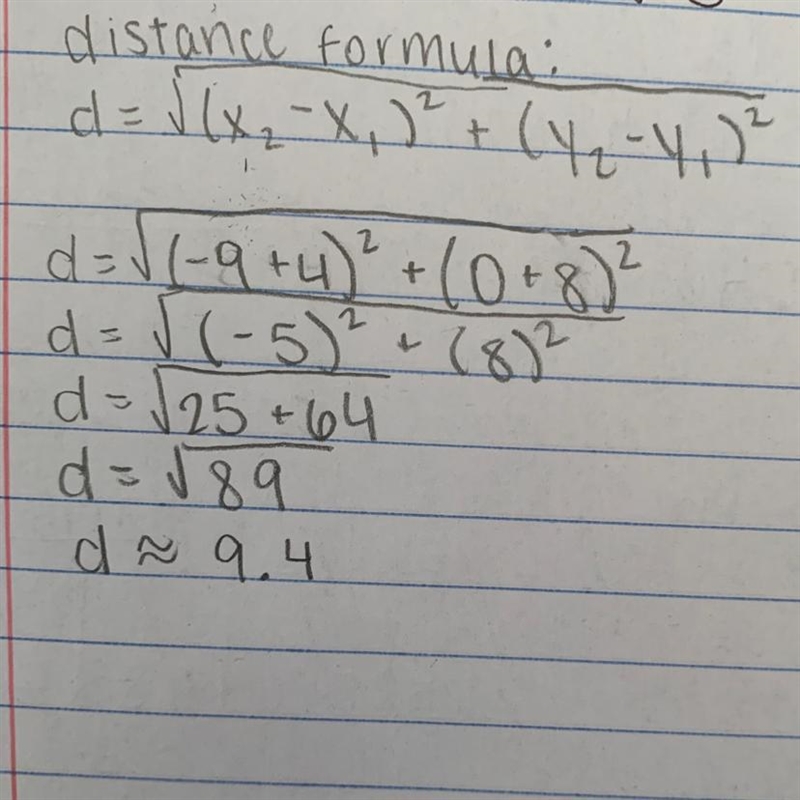 distance formula:
d = √(x₂ - x₁)² + (y₂ - y₁)²
d = √(-9 + 4)² + (0 + 8)²
d = √(-5)² + (8)²
d = √25 + 64
d = √89
d ≈ 9.4